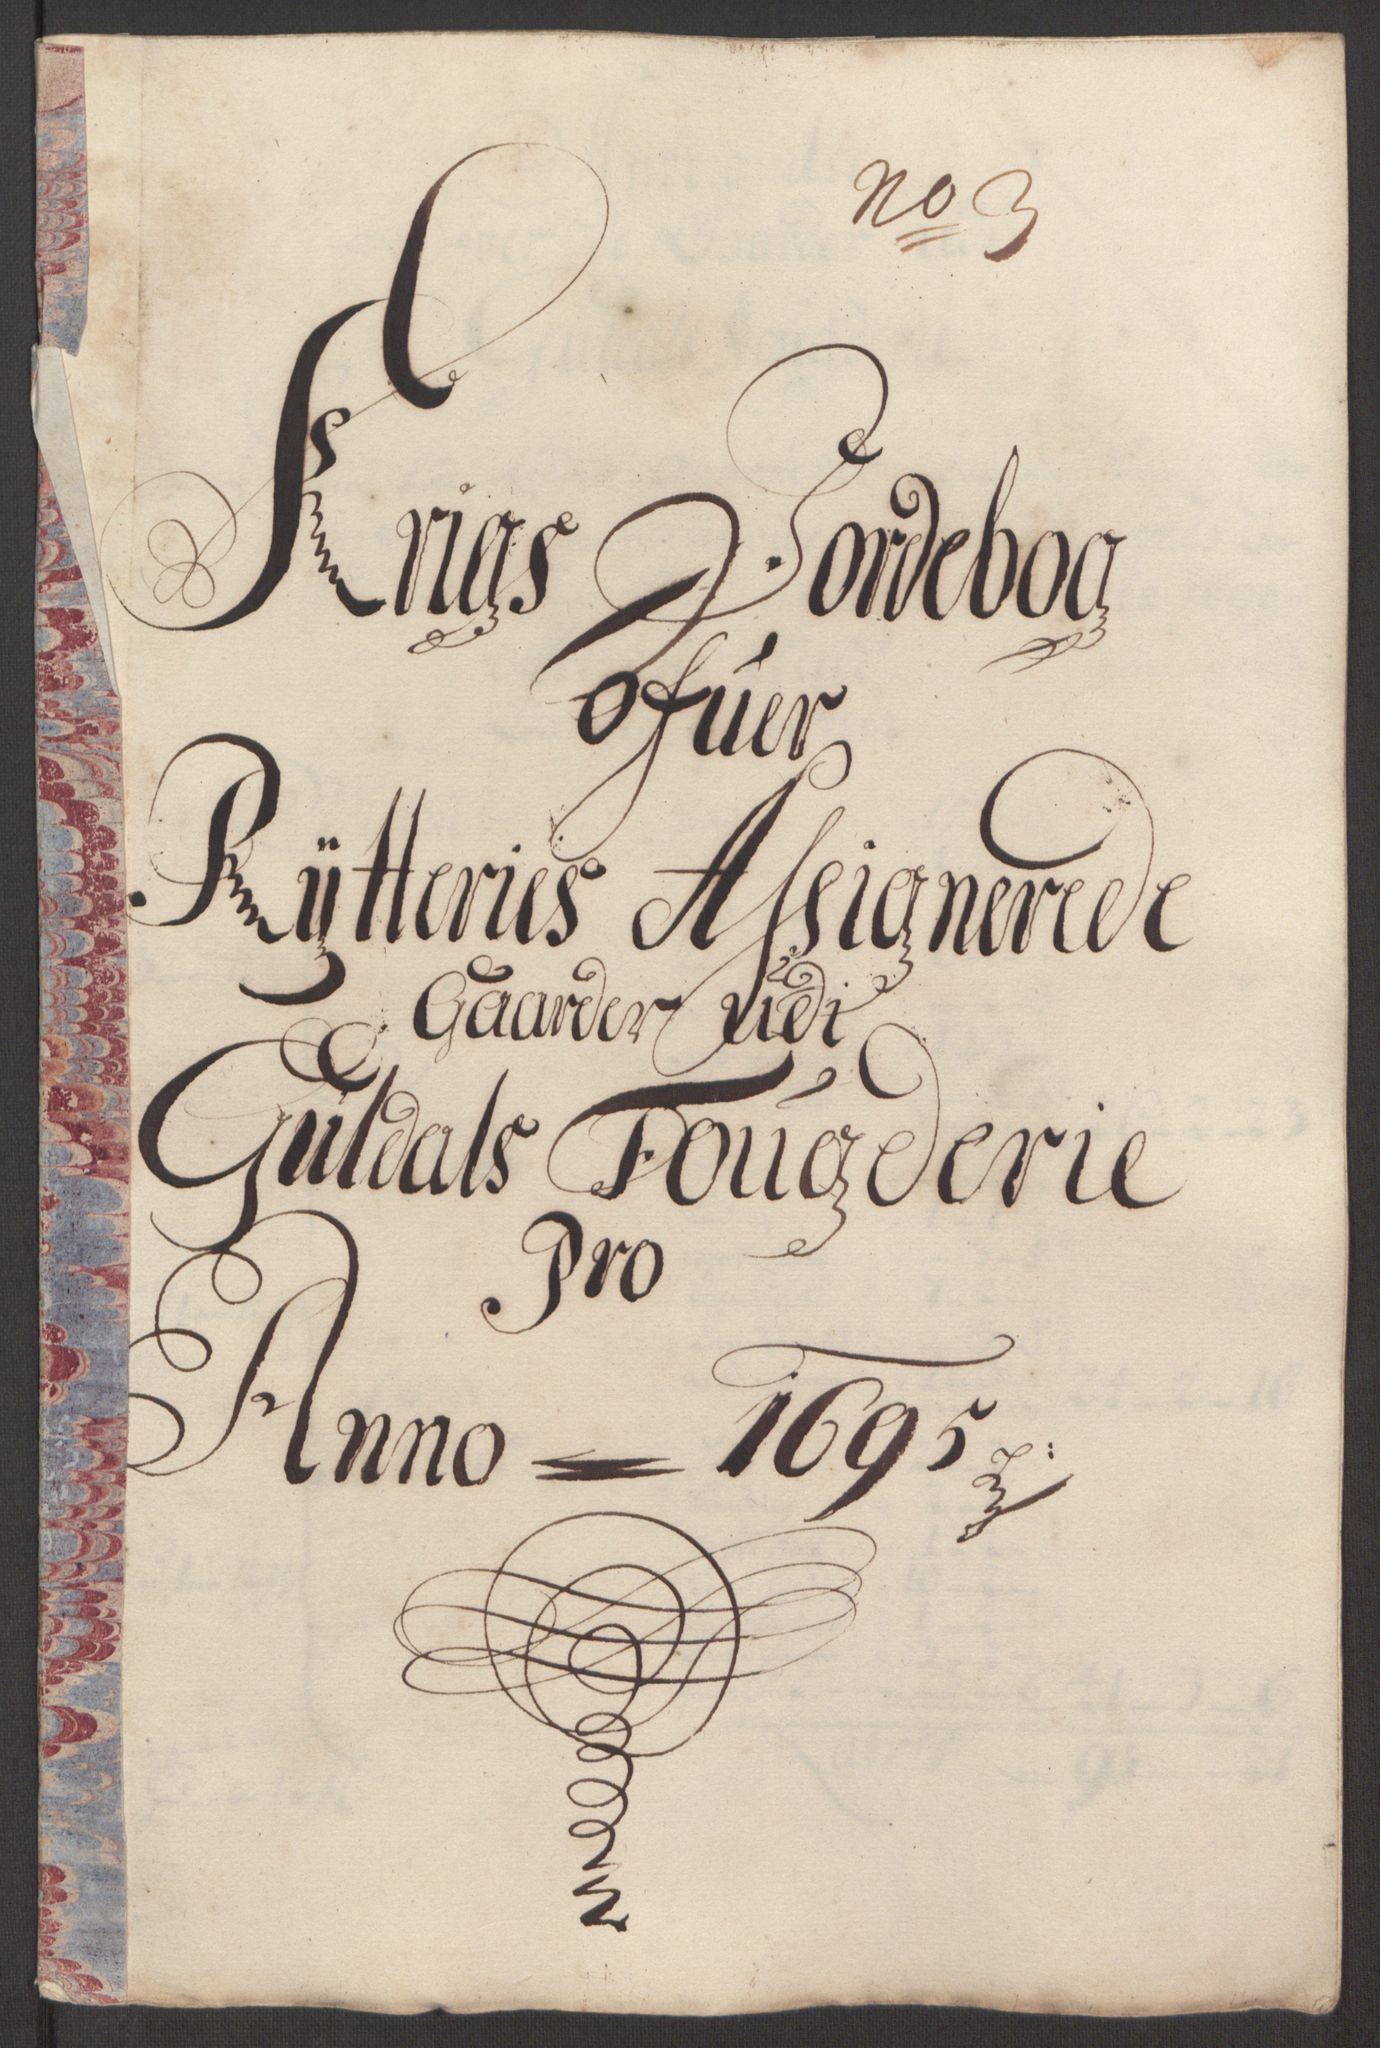 No 3
Krigs Jordebog
Ofuer
Rÿtteries Assignerede
Gaarder udi
Guldals Fougderie
Pro
Anno 1695